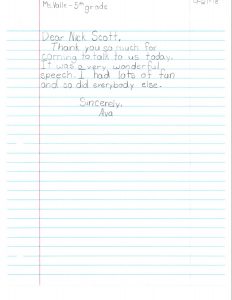 Ms. Valle - 5th grade
Dear Nick Scott,
Thank you so much for
coming to talk to us today.
It was a very wonderful
speech. I had lots of fun
and so did everybody else.
Sincerely,
Ava